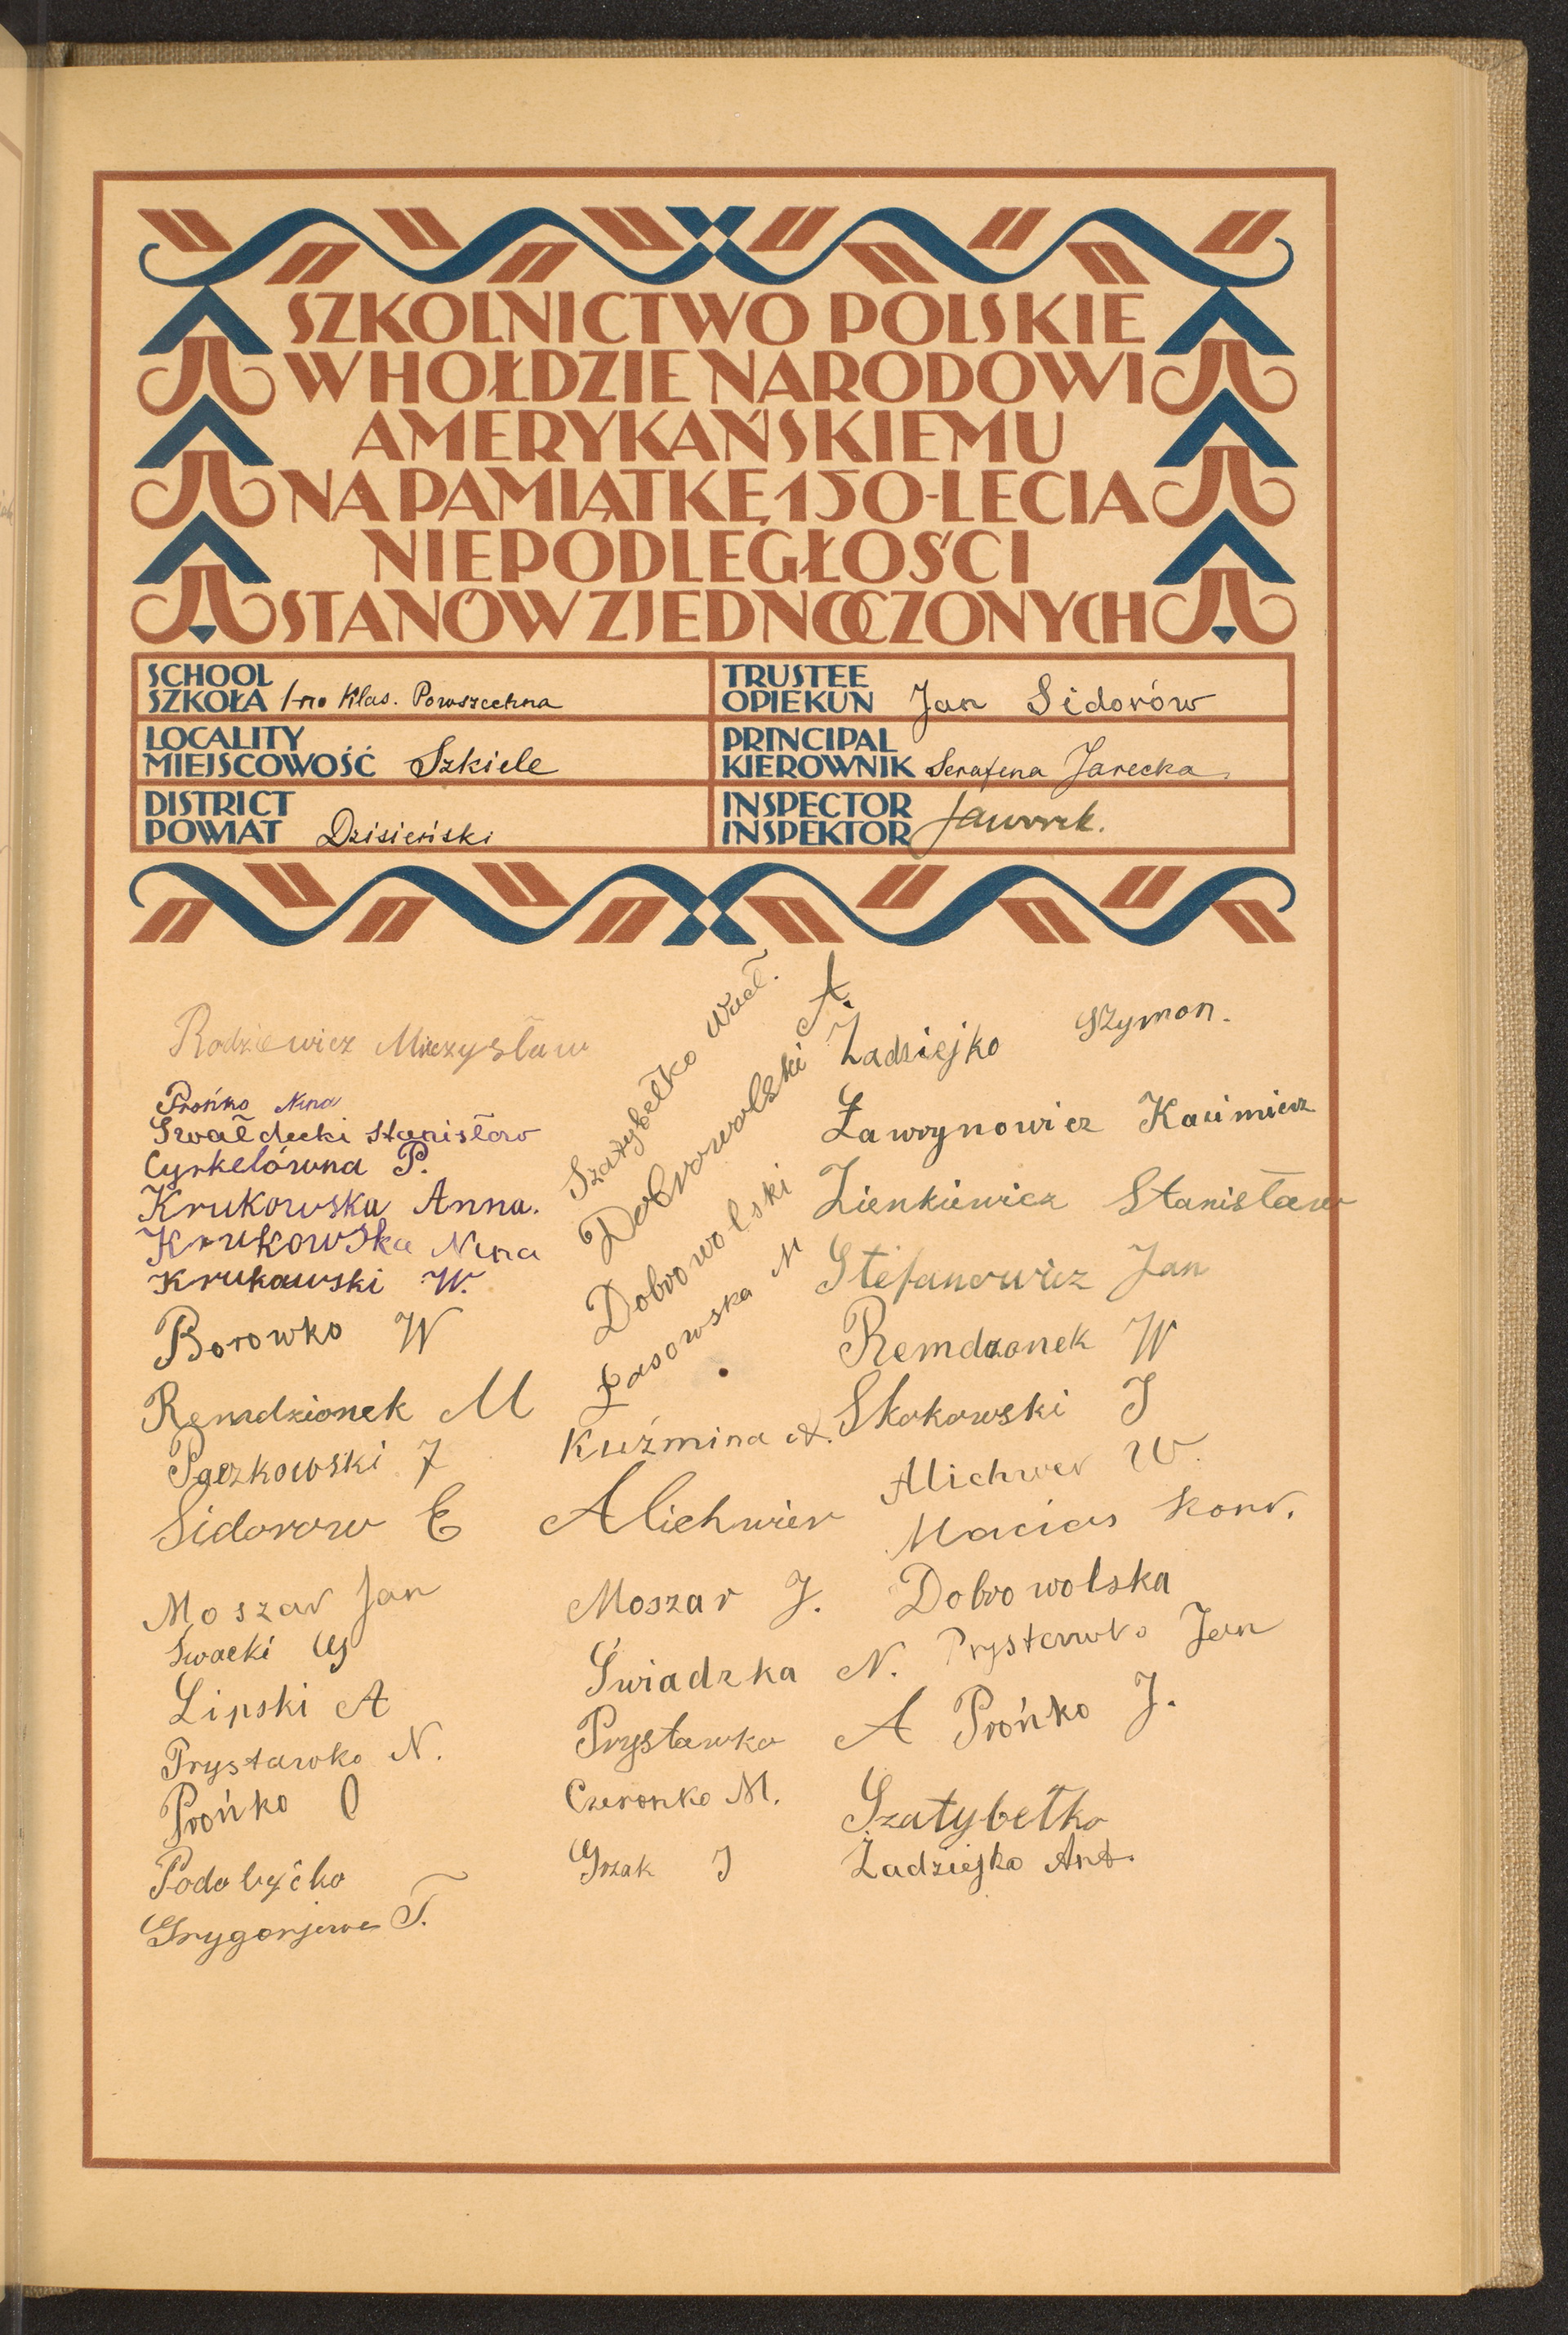 SZKOLNICTWO POLSKIE
W HOŁDZIE NARODOWI
AMERYKAŃSKIEMU
NA PAMIĄTKĘ 150-LECIA
NIEPODLEGŁOŚCI
STANÓW ZJEDNOCZONYCH
SCHOOL
SZKOŁA 1-no Klas. Powszechna
LOCALITY
MIEJSCOWOŚĆ Szkiele
DISTRICT
POWIAT Dzisieński
TRUSTEE
OPIEKUN Jan Sidorów
PRINCIPAL
KIEROWNIK Serafina Jarecka
INSPECTOR
INSPEKTOR
Rodziewicz Mieczysław
Prońko Nina
Swałdecki Stanisław
Cyrkelówna P.
Krukowska Anna.
Krukowska Nina
Krukawski W.
Borowko W
Remdzionek M
Paczkowski J
Sidorow E
Moszar Jan
Swacki W
Lipski A
Prystawko N.
Prońko O
Podobyćko
Grygorjewa T.
Szatybełko Wacł.
Dobrowolski A.
Dobrowolski
Łasowska M
Kuźmina A.
Alichwier
Moszar J.
Świadzka N.
Prystawko A
Czeronko M.
Grzak J
Żadziejko Szymon.
Ławrynowicz Kazimierz
Zienkiewicz Stanisław
Stefanowicz Jan
Remdzonek W
Skokowski J
Alichwer W.
Macias Konr.
Dobrowolska
Prystawko Jan
Prońko J.
Szatybełko
Żadziejko Ant.